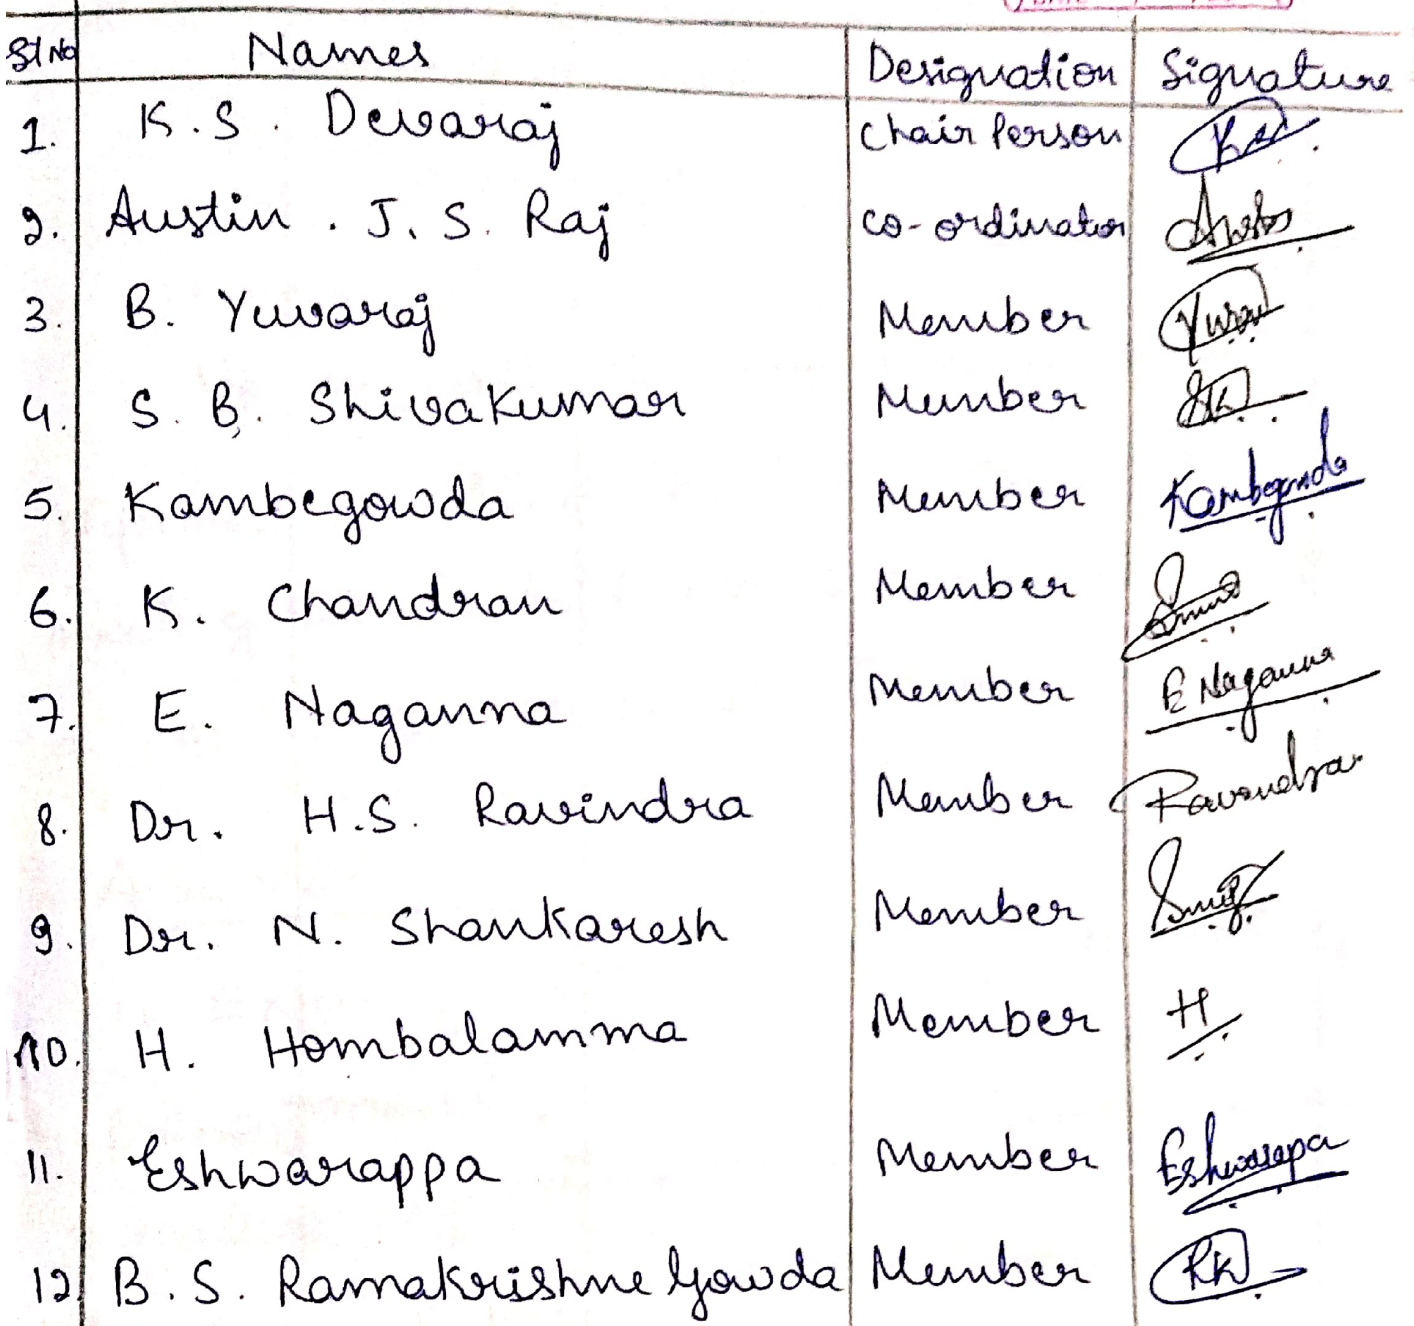 Sl No Names Designation Signature
1. K.S. Devaraj Chair Person
2. Austin. J. S. Raj Co-ordinator
3. B. Yuvaraj Member
4. S. B. Shivakumar Member
5. Kambegowda Member Kambegowda
6. K. Chandran Member
7. E. Naganna Member E Naganna
8. Dr. H.S. Ravindra Member Ravindra
9. Dr. N. Shankaresh Member
10. H. Hombalamma Member H
11. Eshwarappa Member Eshwarappa
12 B.S. Ramakrishne Gowda Member RK